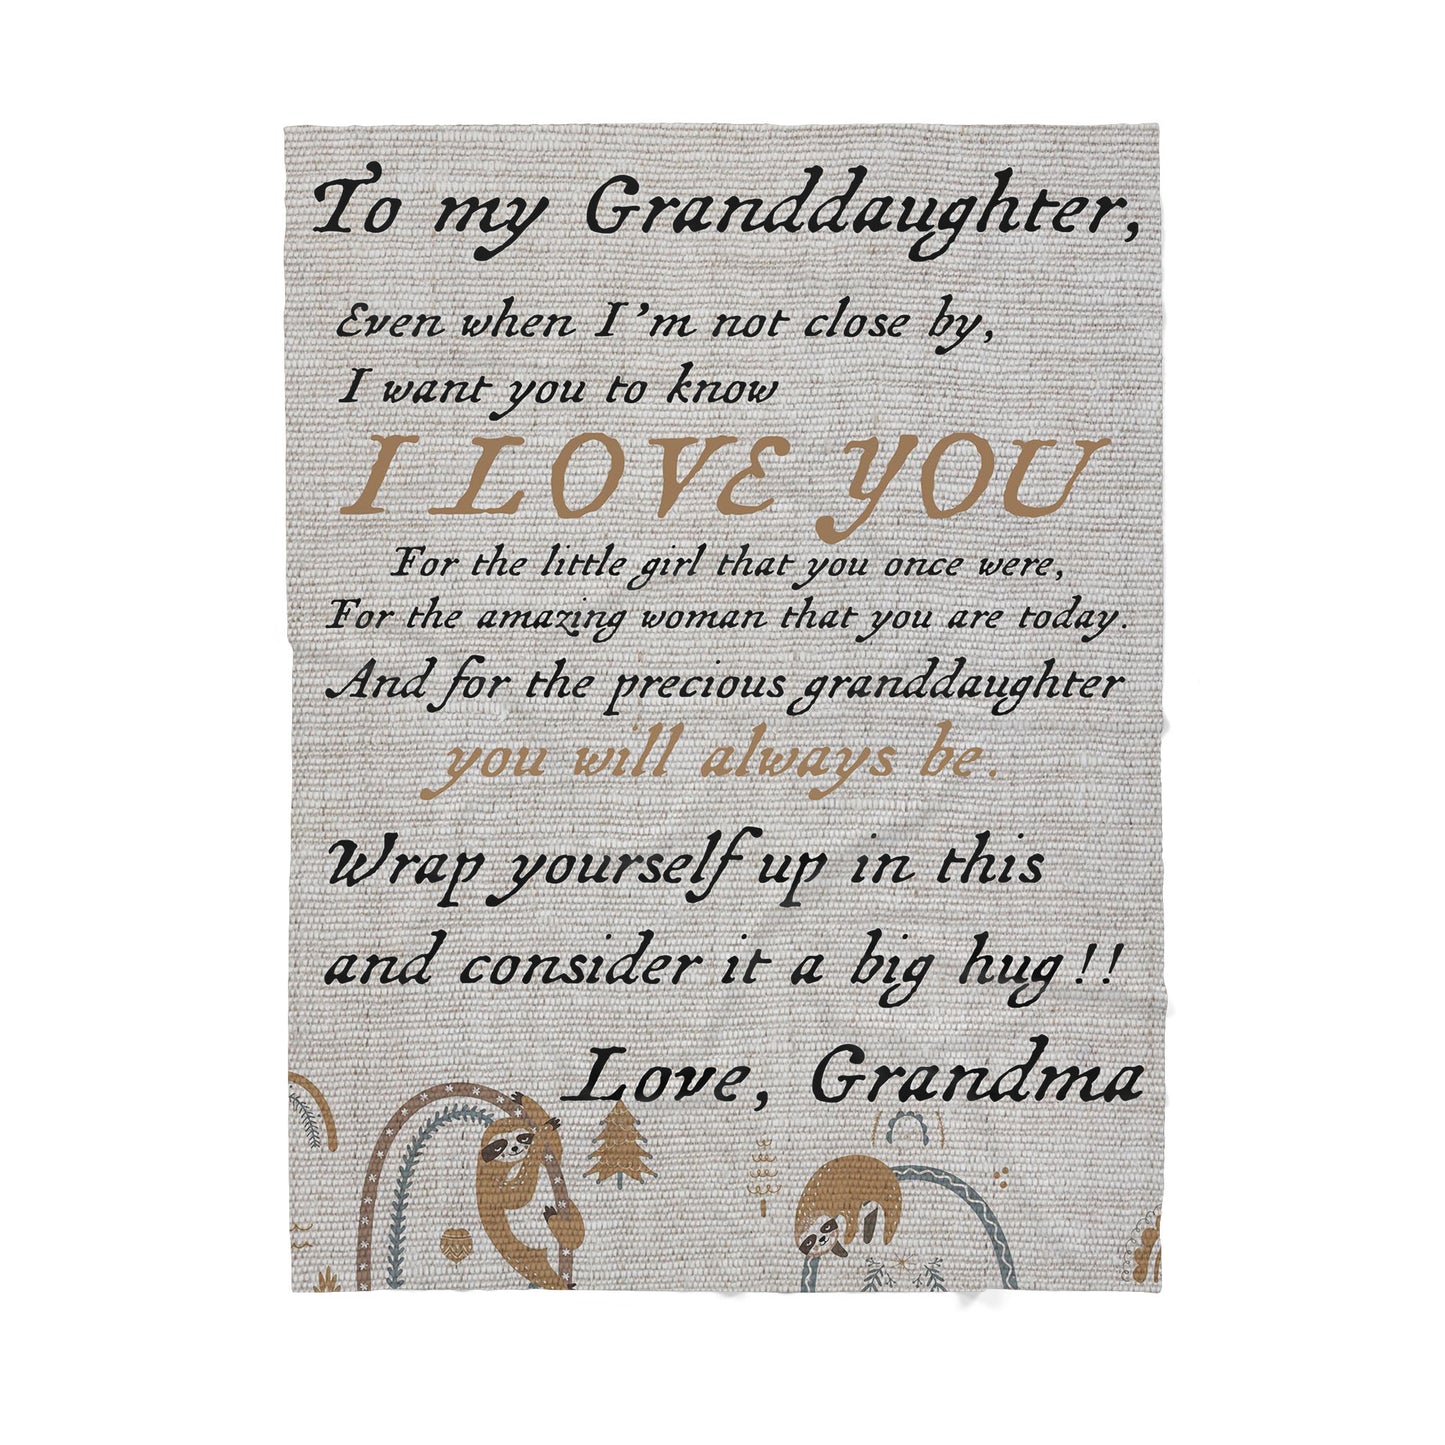 To my Granddaughter,
Even when I'm not close by,
I want you to know
I LOVE YOU
For the little girl that you once were,
For the amazing woman that you are today.
And for the precious granddaughter
you will always be.
Wrap yourself up in this
and consider it a big hug!!
Love, Grandma